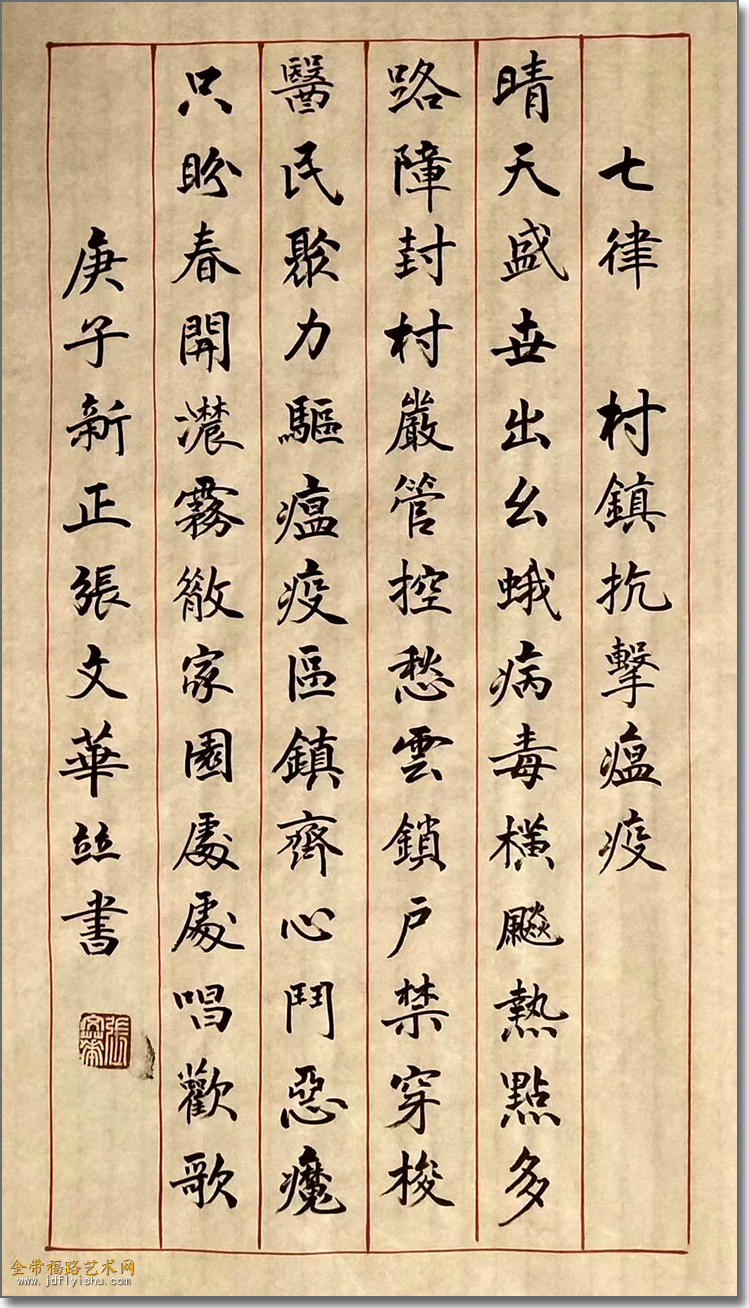 七律 村鎮抗擊瘟疫
晴天盛世出幺蛾病毒橫飈熱點多
路障封村嚴管控愁雲鎖户禁穿梭
醫民聚力驅瘟疫區鎮齊心鬥惡魔
只盼春開濃霧散家園處處唱歡歌
庚子新正張文華並書
金带福路艺术网
www.jdflyishu.com